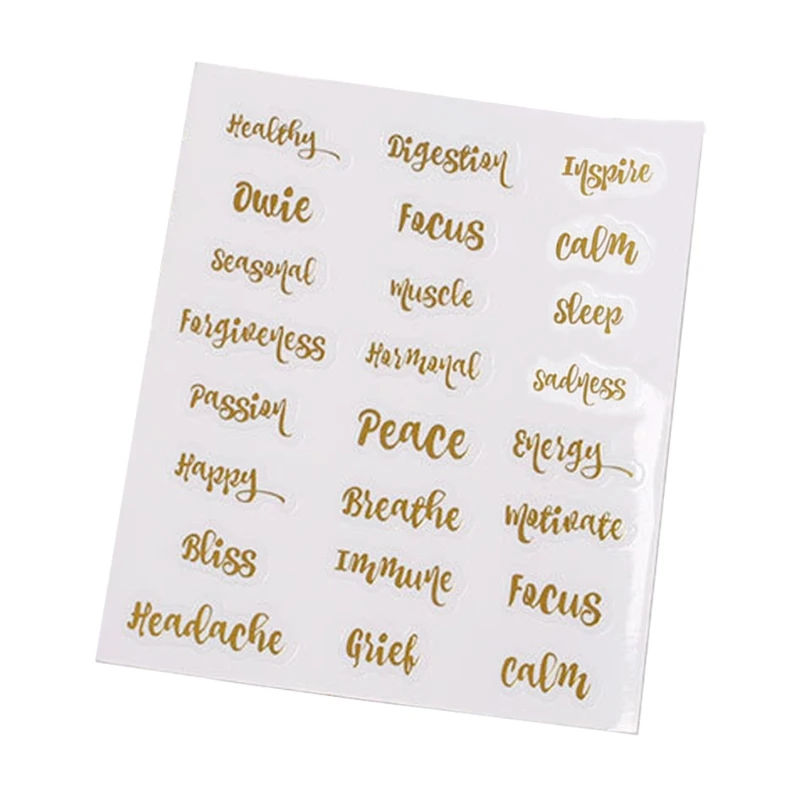 Healthy
Digestion
Inspire
Owie
Focus
calm
Seasonal
muscle
sleep
Forgiveness
Hormonal
sadness
Passion
Peace
Energy
Happy
Breathe
Motivate
Bliss
Immune
Focus
Headache
Grief
calm